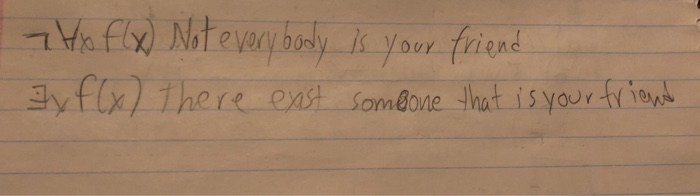 ¬∀x f(x) Not everybody is your friend
∃x f(x) There exist someone that is your friend